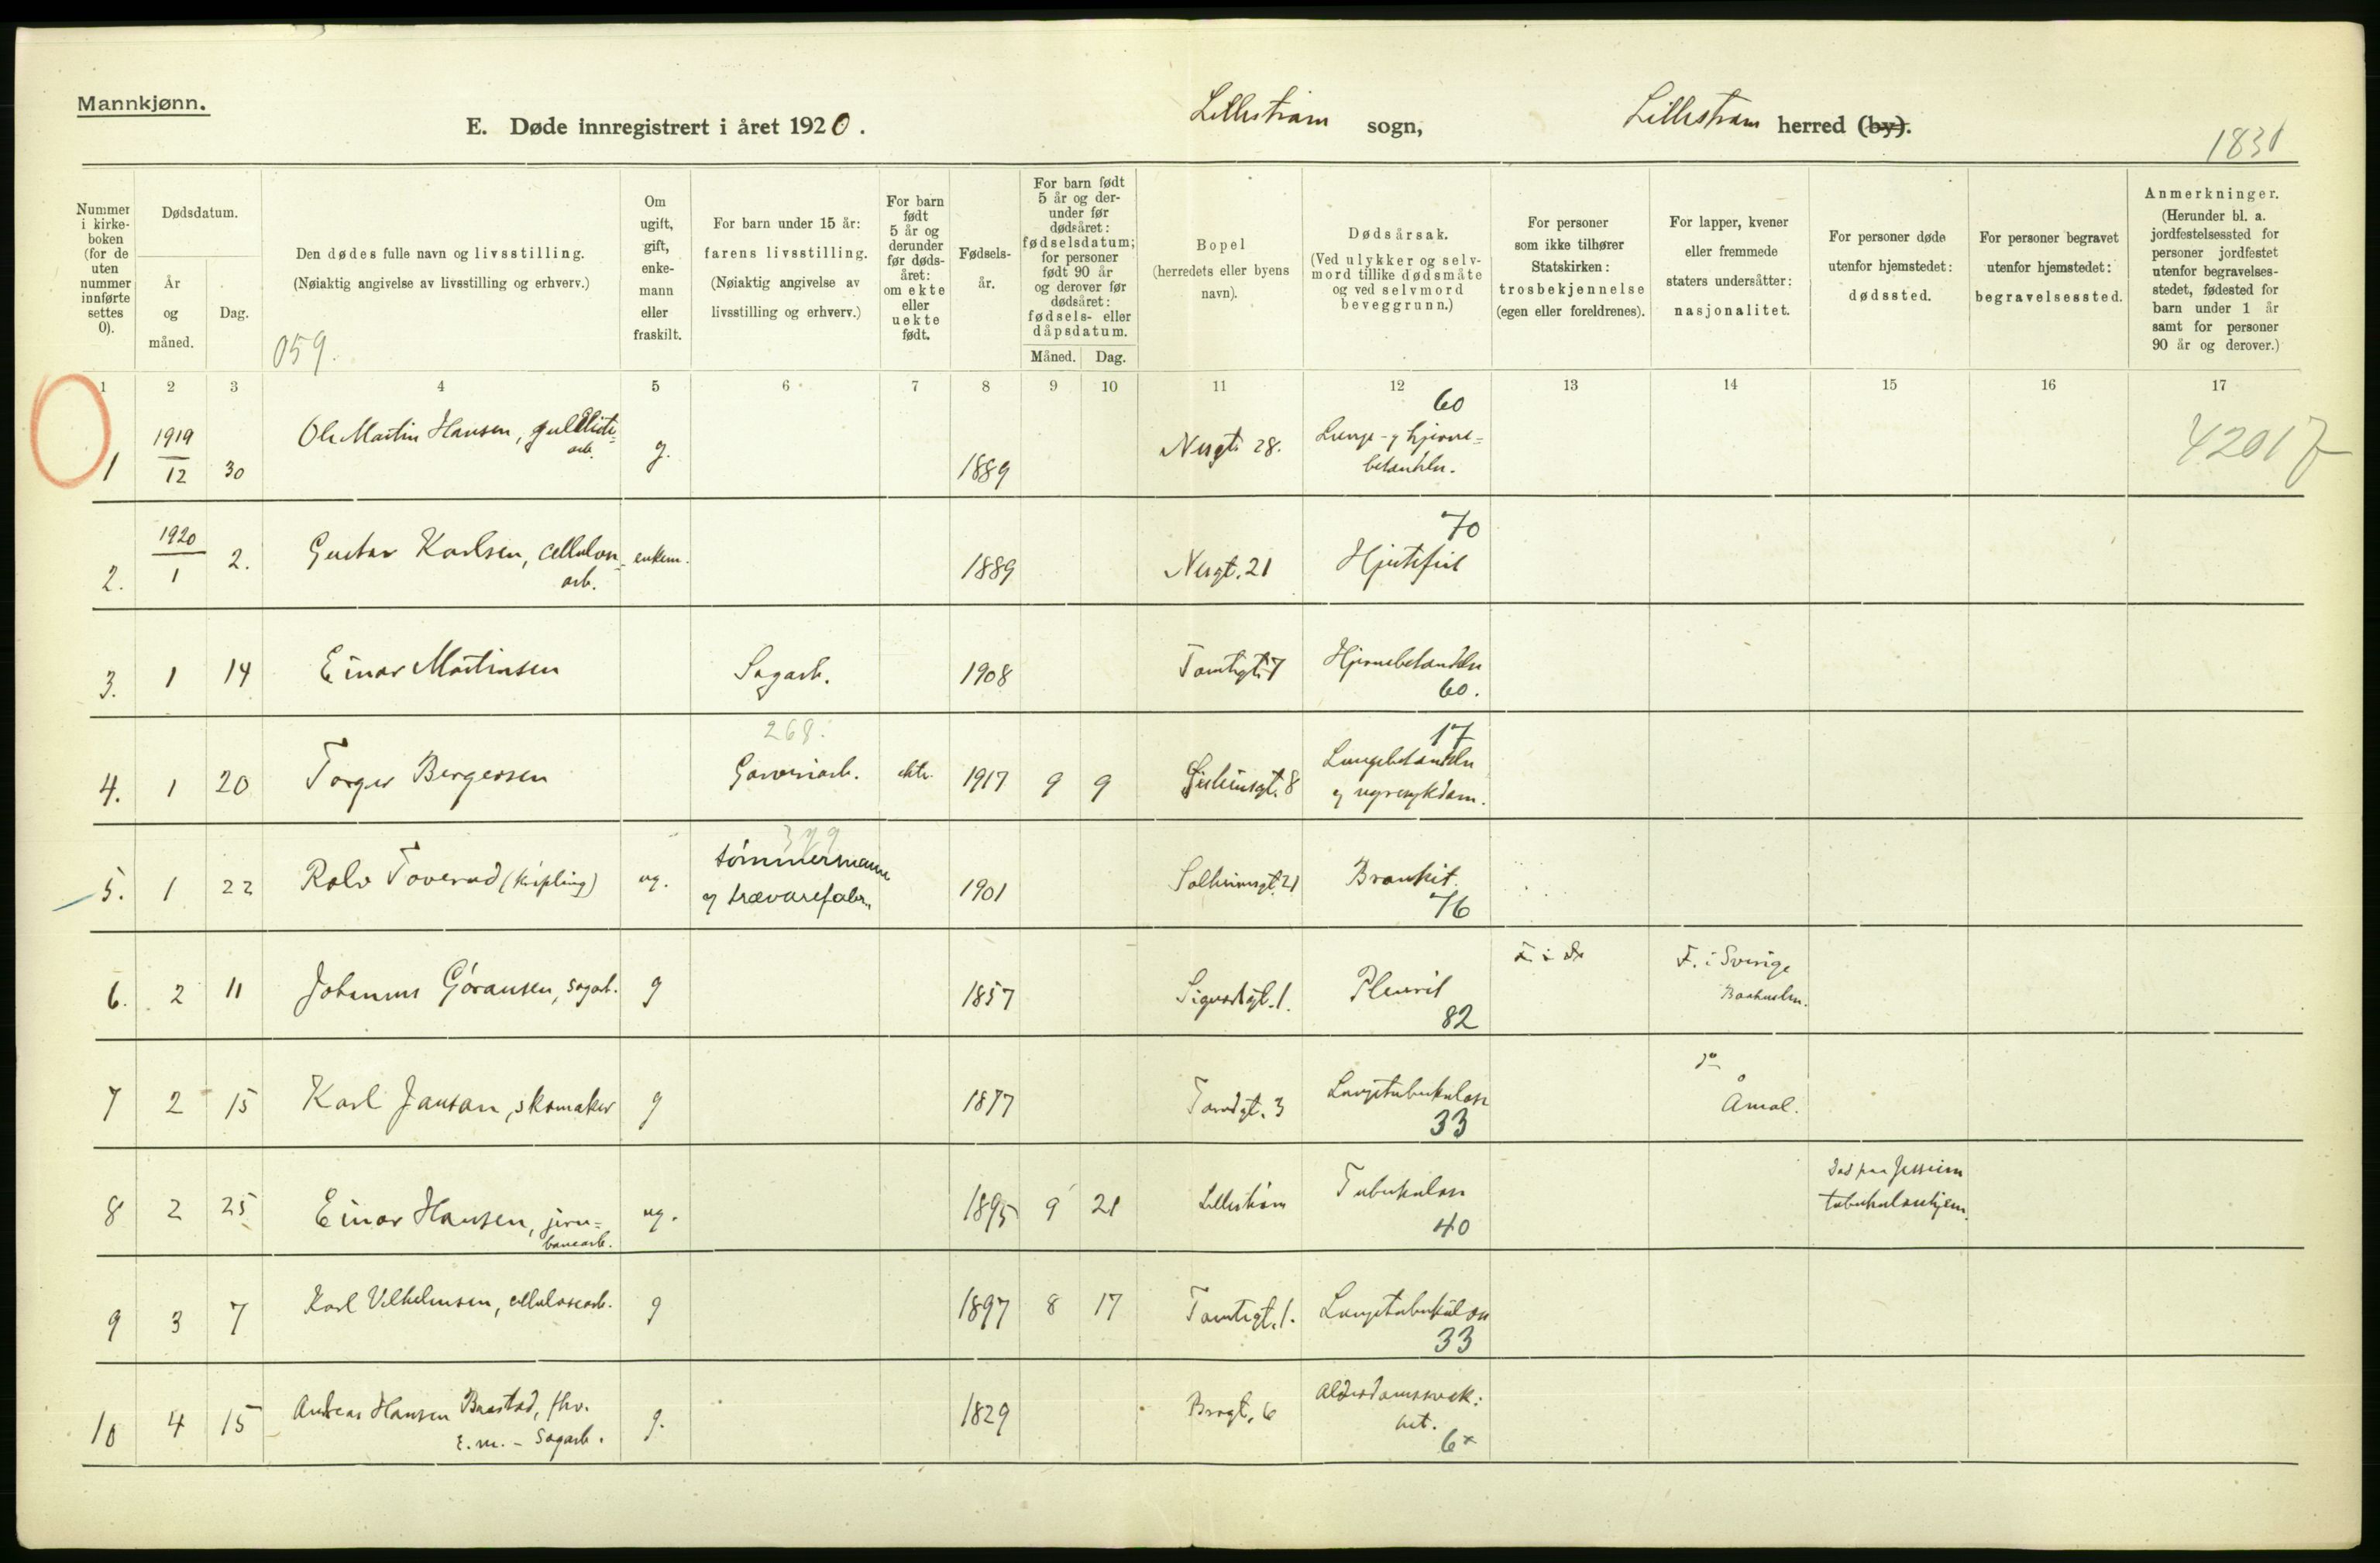 Mannkjønn.
E. Døde innregistrert i året 1920. Lillestrøm sogn, Lillestrøm herred (by).
1831
Nummer i kirke-boken (for de uten nummer innførte settes 0).
Dødsdatum.
År og måned.
Dag.
Den dødes fulle navn og livsstilling.
(Nøiaktig angivelse av livsstilling og erhverv.)
059.
Om ugift, gift, enke-mann eller fraskilt.
For barn under 15 år:
farens livsstilling.
(Nøiaktig angivelse av livsstilling og erhverv.)
For barn født 5 år og derunder før døds-året: om ekte eller uekte født.
Fødsels-år.
For barn født 5 år og der-under før dødsåret: fødselsdatum; for personer født 90 år og derover før dødsåret: fødsels- eller dåpsdatum.
Måned. Dag.
Bopel
(herredets eller byens navn).
Dødsårsak.
(Ved ulykker og selv-mord tillike dødsmåte og ved selvmord beveggrunn.)
For personer som ikke tilhører Statskirken: trosbekjennelse (egen eller foreldrenes).
For lapper, kvener eller fremmede staters undersåtter: nasjonalitet.
For personer døde utenfor hjemstedet: dødssted.
For personer begravet utenfor hjemstedet: begravelsessted.
Anmerkninger.
(Herunder bl. a. jordfestelsessted for personer jordfestet utenfor begravelses-stedet, fødested for barn under 1 år samt for personer 90 år og derover.)
1 2 3 4 5 6 7 8 9 10 11 12 13 14 15 16 17
60
1 1919/12 30 Ole Martin Hansen, arb. g. 1889 Nergt. 28. Lunge- og hjerne=
betændelse. 4201
70
2. 1920/1 2. Gustav Karlsen, cellulose=
arb. enkem. 1889 Nergt. 21 Hjertefeil
3. 1 14 Einar Martinsen Sagarb. 1908 Tomtegt. 7 Hjernebetændelse
60.
268. 17
4. 1 20 Torger Bergersen Garveriarb. ekte. 1917 9 9 Lungebetændelse
og nyresykdom.
5. 1 22 Rolv Toverud (Kripling) ug. tømmermann
og trævarefabr. 1901 Solheimsgt. 21 Bronkit.
76
6. 2 11 Johannes Göransen, sagarb. g 1857 Sigurdsgt. 1. Pleurit F. i Sverige
82
7 2 15 Karl Janson, skomaker g 1877 3 Lungetuberkulose do
Åmål.
33
8 2 25 Einar Hansen, jern=
banearb. ug. 1895 9 21 Lillestrøm Tuberkulose Død paa Jessheim
tuberkulosehjem.
40
9 3 7 Karl Vilhelmsen, cellulosearb. g 1897 8 17 Tomtegt. 1. Lungetuberkulose
33
10 4 15 Andreas Hansen Baastad, fhv.
E.m. - Sagarb. g. 1829 Brogt. 6 Alderdomssvak:
het.
6x